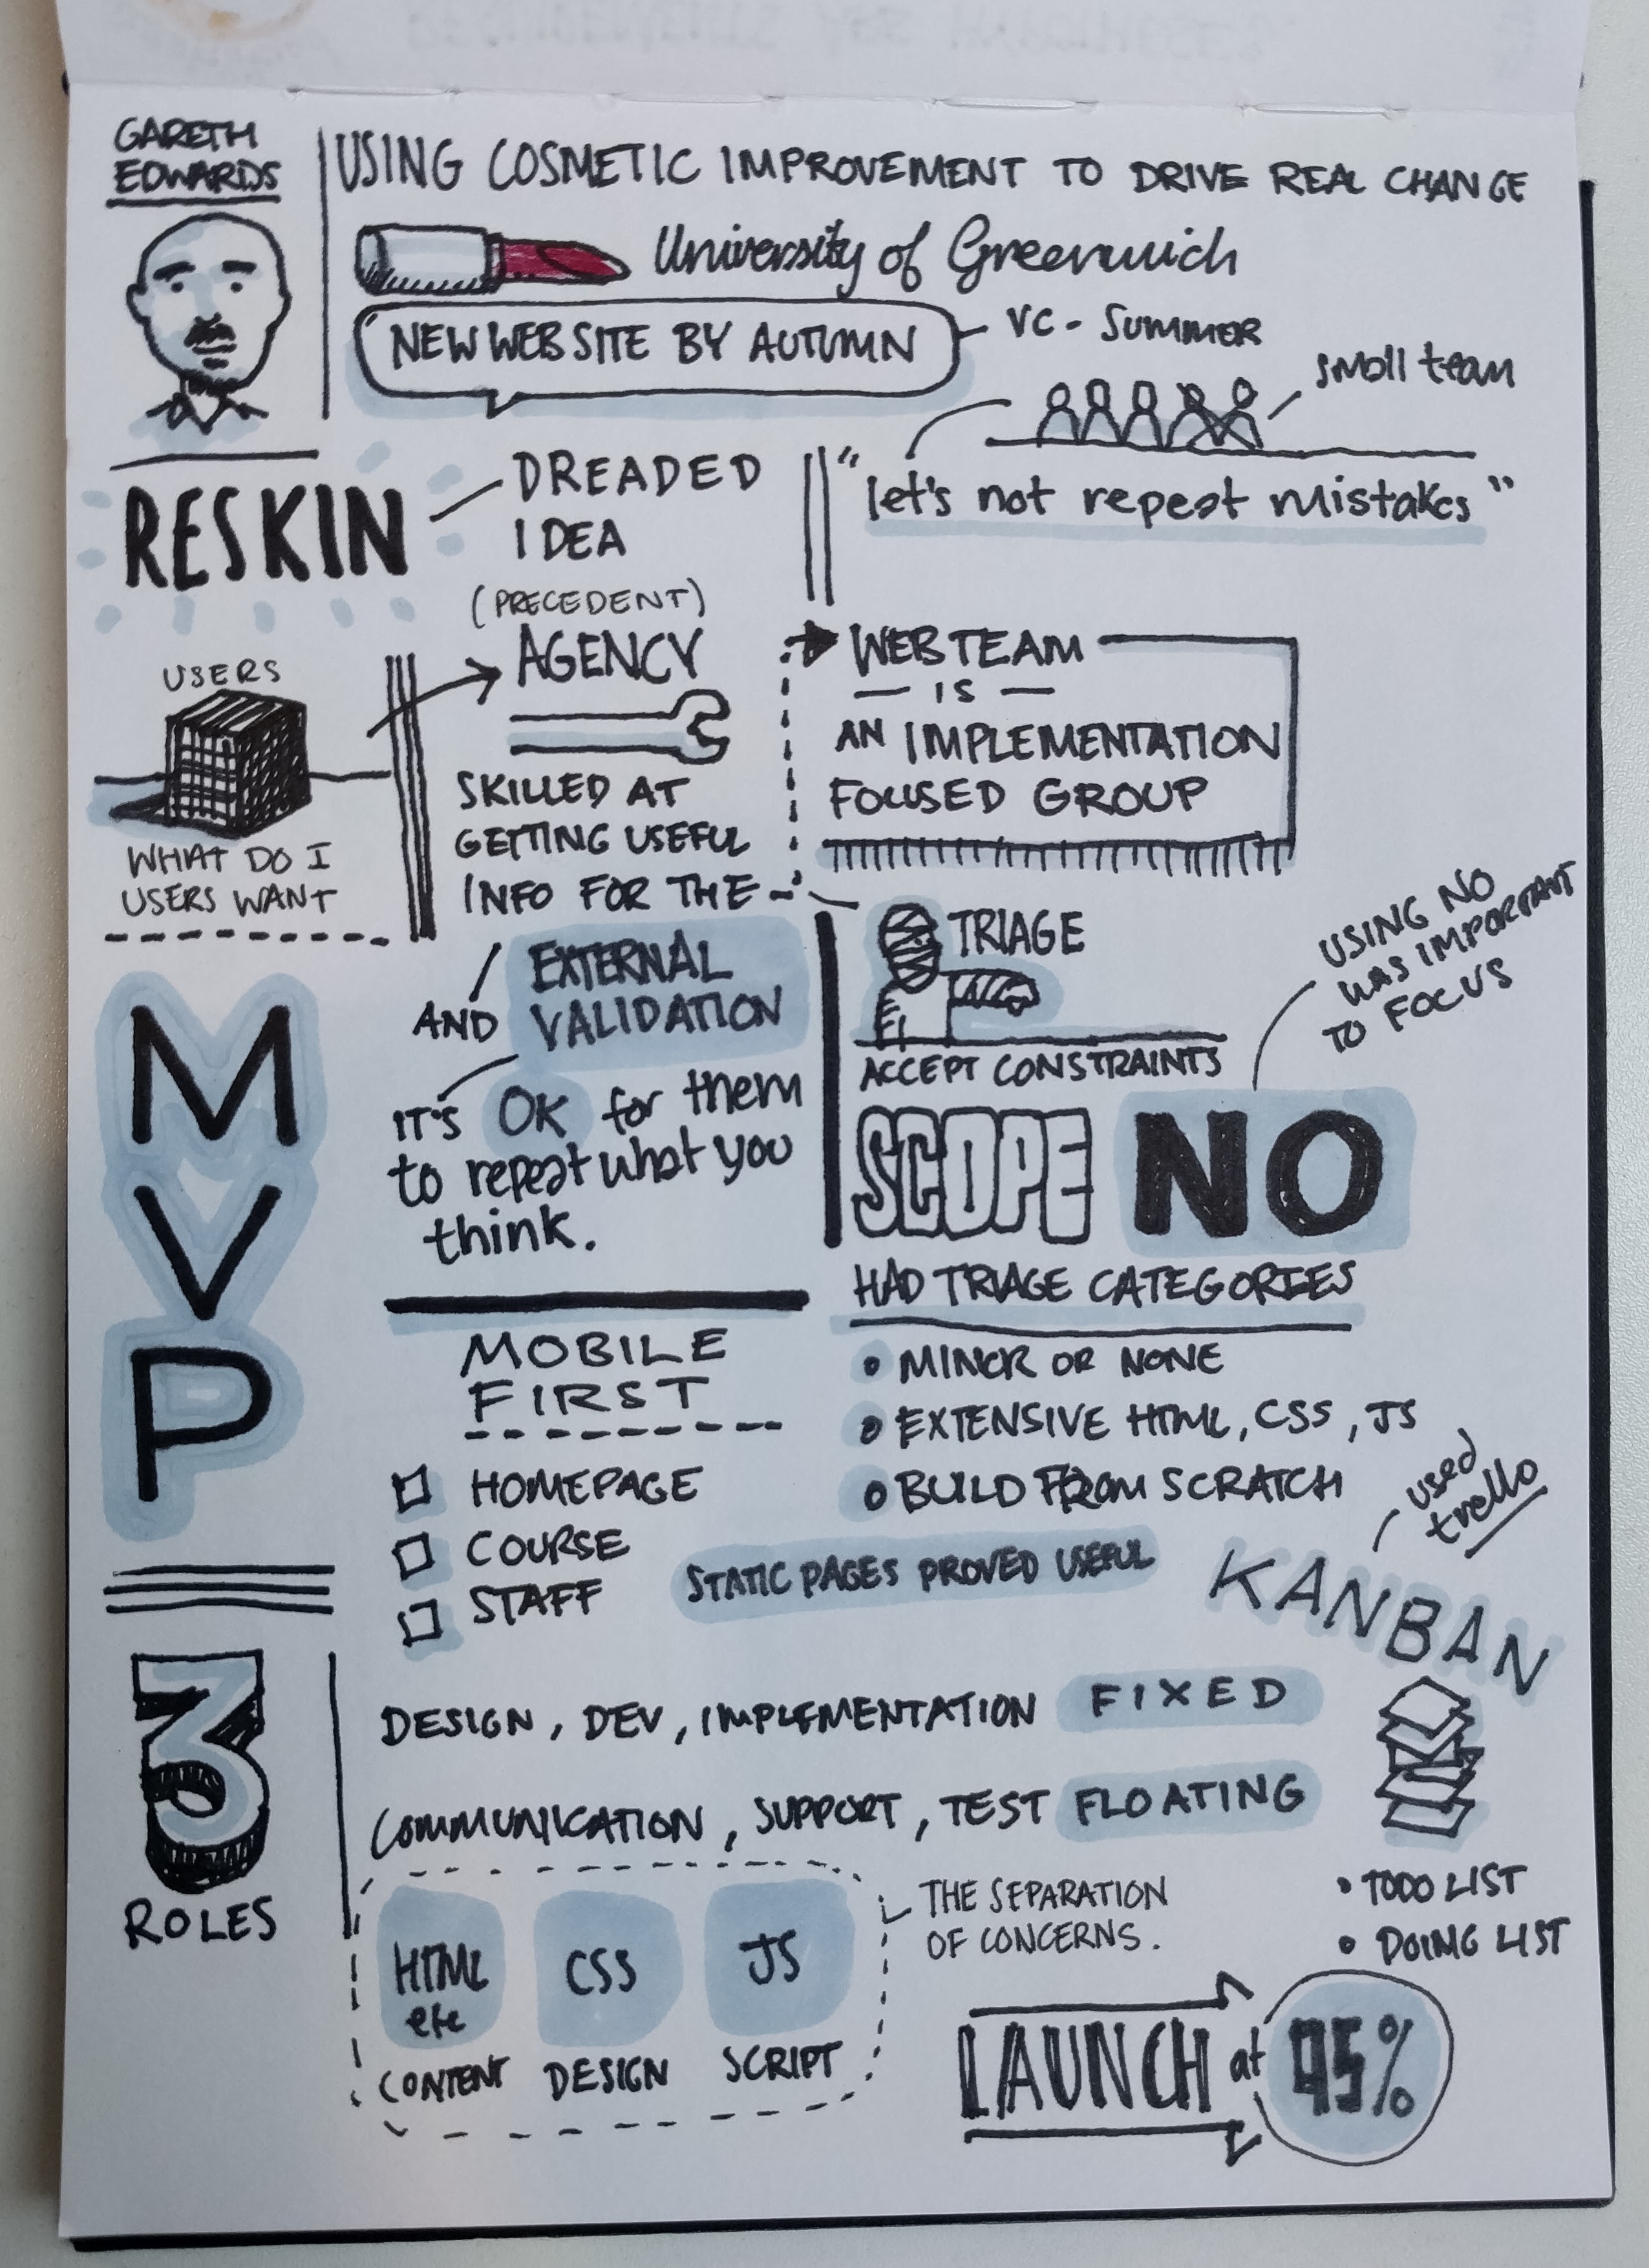 GARETH
EDWARDS
USING COSMETIC IMPROVEMENT TO DRIVE REAL CHANGE
University of Greenwich
NEW WEBSITE BY AUTUMN
VC - SUMMER
small team
"let's not repeat mistakes"
RESKIN
DREADED
IDEA
(PRECEDENT)
AGENCY
SKILLED AT
GETTING USEFUL
INFO FOR THE
WEB TEAM
— IS —
AN IMPLEMENTATION
FOCUSED GROUP
USERS
WHAT DO I
USERS WANT
AND
EXTERNAL
VALIDATION
IT'S OK for them
to repeat what you
think.
TRIAGE
ACCEPT CONSTRAINTS
USING NO
WAS IMPORTANT
TO FOCUS
SCOPE NO
HAD TRIAGE CATEGORIES
• MINOR OR NONE
• EXTENSIVE HTML, CSS, JS
• BUILD FROM SCRATCH
MVP
MOBILE
FIRST
HOMEPAGE
COURSE
STAFF
STATIC PAGES PROVED USEFUL
used
trello
KANBAN
• TODO LIST
• DOING LIST
3
ROLES
DESIGN, DEV, IMPLEMENTATION FIXED
COMMUNICATION, SUPPORT, TEST FLOATING
HTML
etc
CSS
JS
CONTENT
DESIGN
SCRIPT
THE SEPARATION
OF CONCERNS.
LAUNCH at 95%